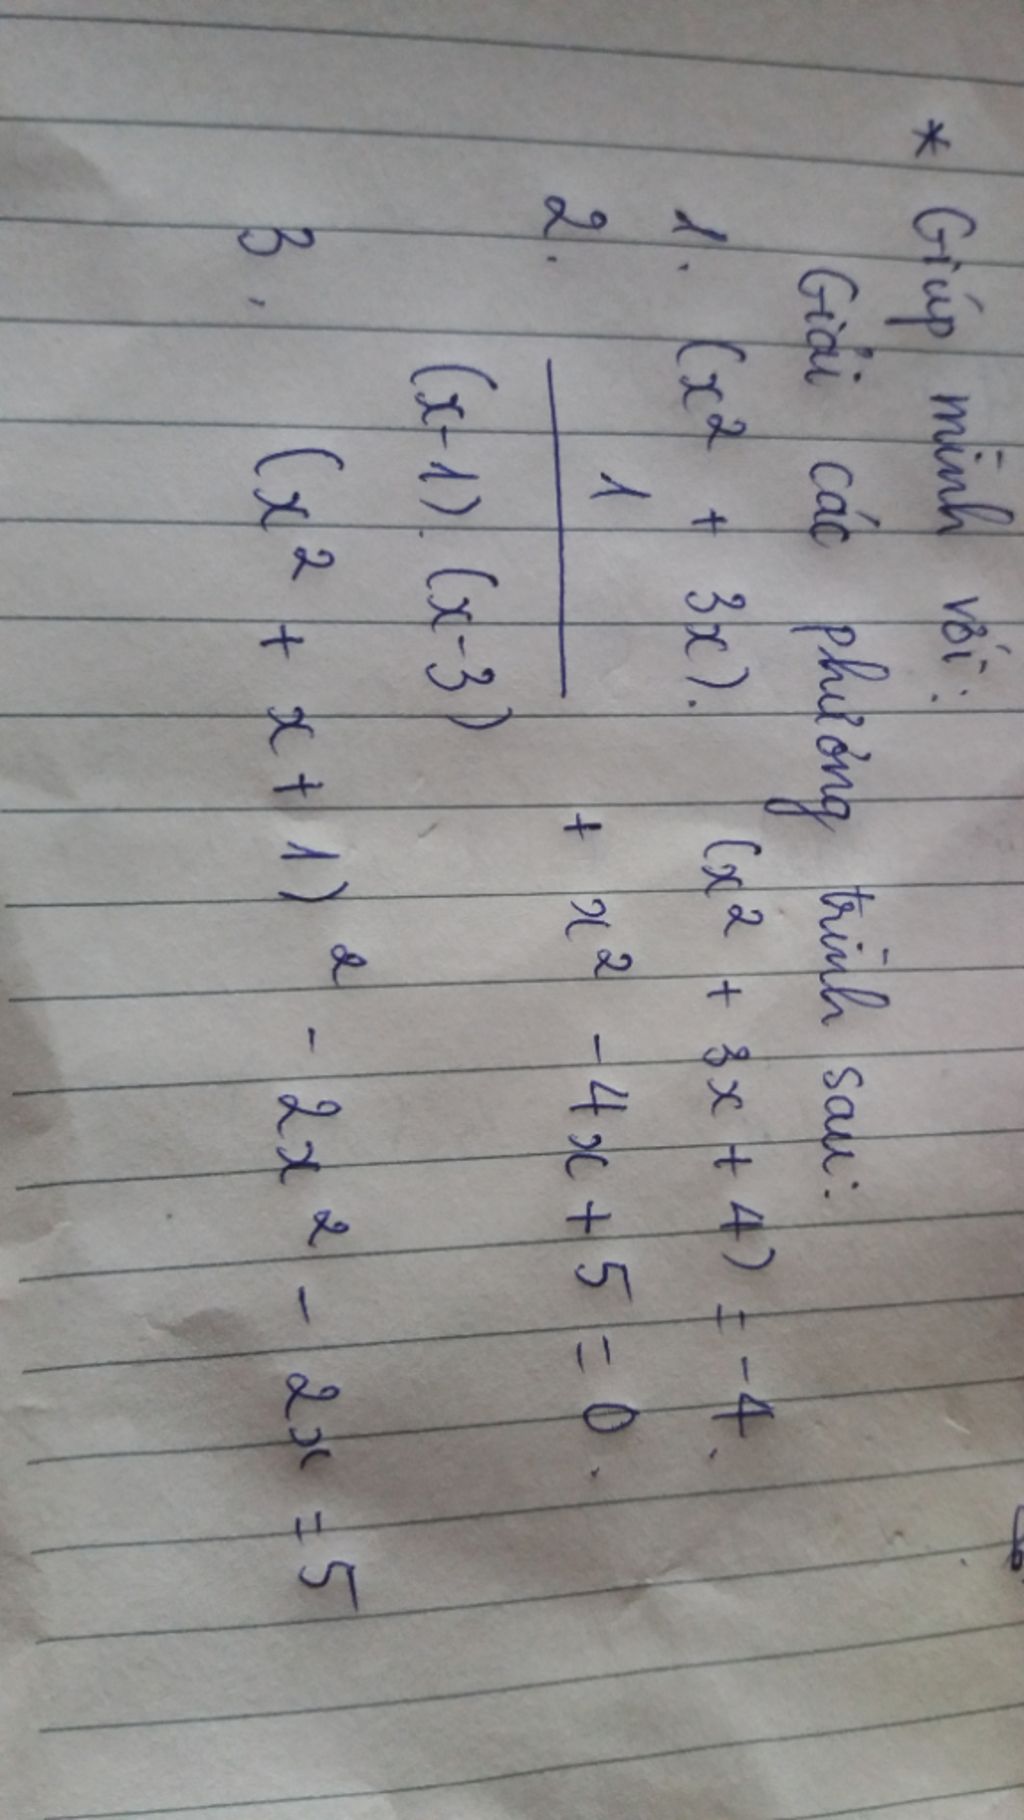 * Giúp mình với:
Giải các phương trình sau:
1. (x² + 3x). (x² + 3x + 4) = -4.
2. 1/((x-1).(x-3)) + x² - 4x + 5 = 0.
3, (x² + x + 1)² - 2x² - 2x = 5